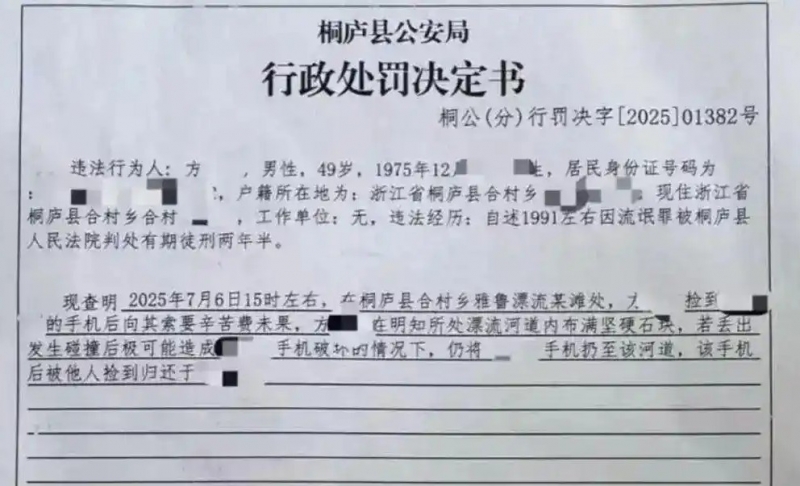 桐庐县公安局
行政处罚决定书
桐公(分)行罚决字[2025]01382号
违法行为人：方 ，男性，49岁，1975年12 生，居民身份证号码为
： ，户籍所在地为：浙江省桐庐县合村乡 ，现住浙江省
桐庐县合村乡合村 ，工作单位：无，违法经历：自述1991左右因流氓罪被桐庐县
人民法院判处有期徒刑两年半。
现查明 2025年7月6日15时左右，在桐庐县合村乡雅鲁漂流某滩处，方 捡到
的手机后向其索要辛苦费未果，方 在明知所处漂流河道内布满坚硬石块，若丢出
发生碰撞后极可能造成 手机破坏的情况下，仍将 手机扔至该河道，该手机
后被他人捡到归还于